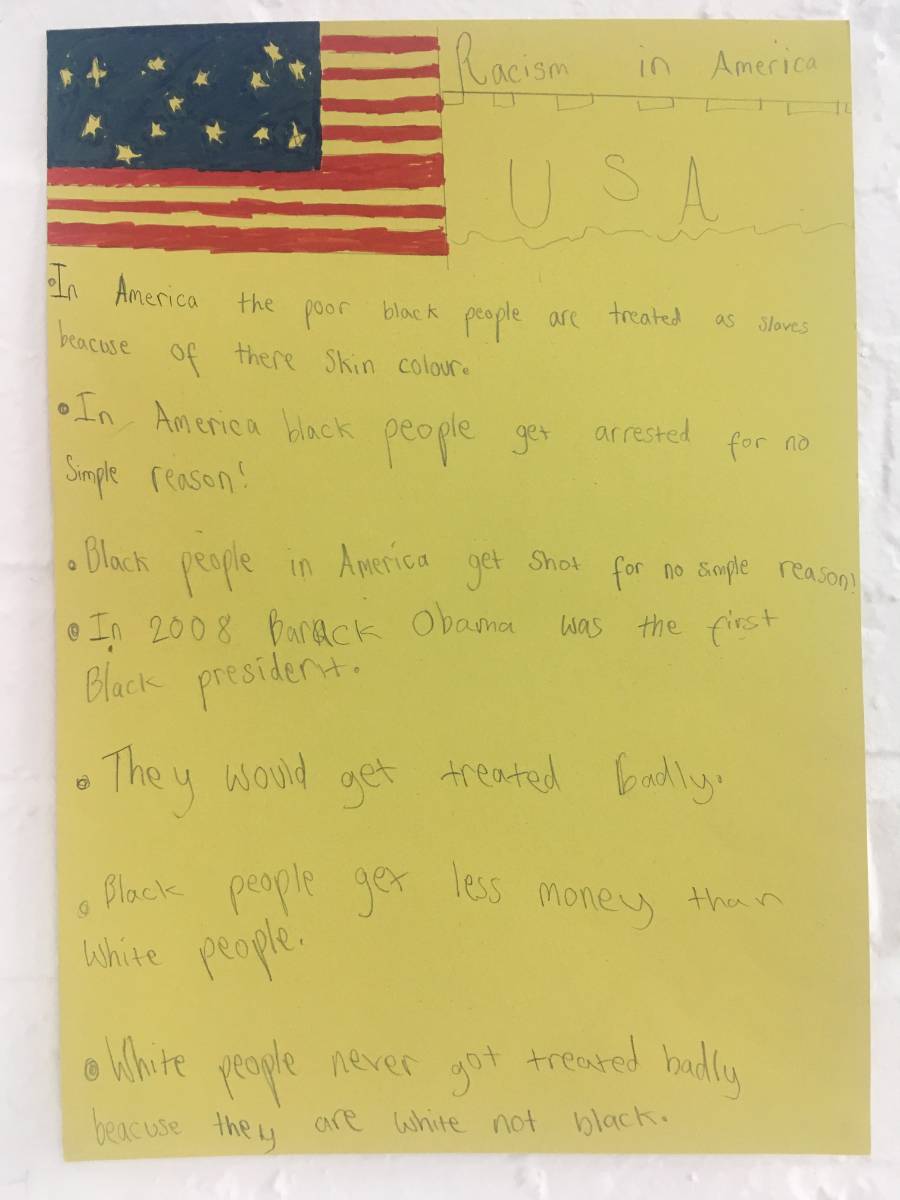 Racism in America
USA
•In America the poor black people are treated as slaves
beacuse of there skin colour.
•In America black people get arrested for no
simple reason!
•Black people in America get shot for no simple reason!
•In 2008 Barack Obama was the first
Black president.
•They would get treated badly.
•Black people get less money than
white people.
•White people never got treated badly
beacuse they are white not black.